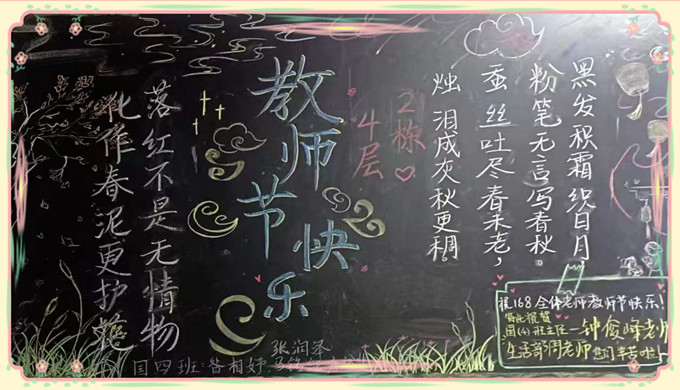 黑发积霜织日月
粉笔无言写春秋。
蚕丝吐尽春未老,
烛泪成灰秋更稠。
2栋
4层
教师节快乐
落红不是无情物
化作春泥更护
祝168全体老师教师节快乐!
国(4)班主任—钟俊峰老师
生活部周老师 您们辛苦啦!
国四班:
张润泽